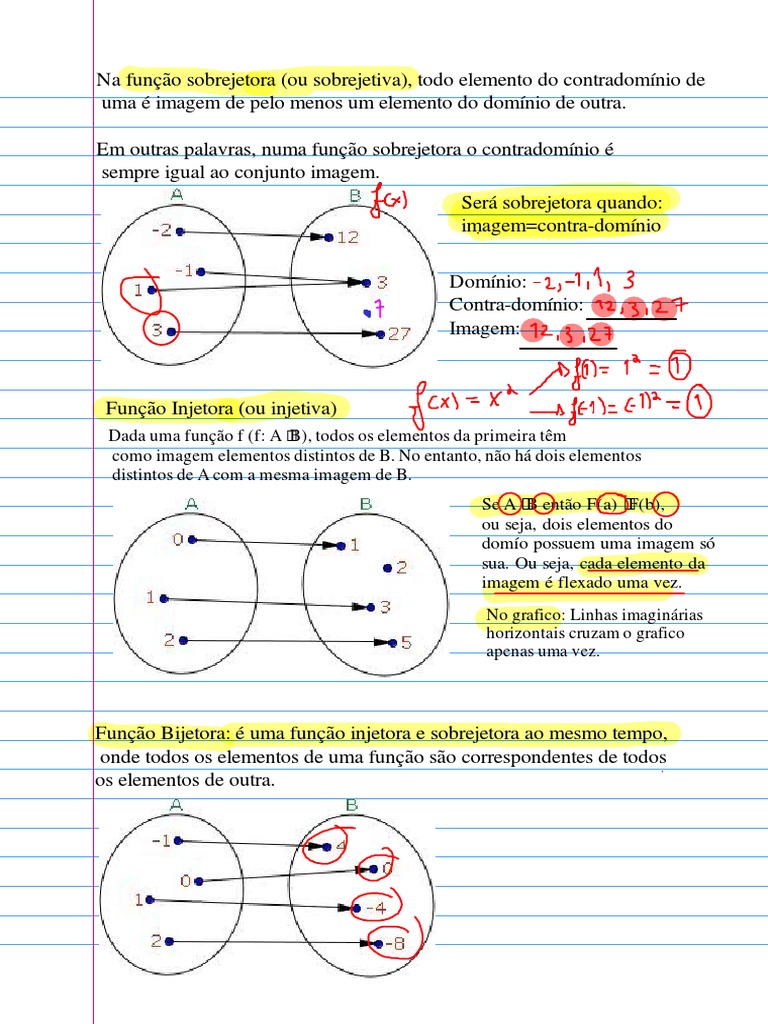 Na função sobrejetora (ou sobrejetiva), todo elemento do contradomínio de
uma é imagem de pelo menos um elemento do domínio de outra.
Em outras palavras, numa função sobrejetora o contradomínio é
sempre igual ao conjunto imagem.
A
B
f(x)
-2
12
-1
3
1
7
3
27
Será sobrejetora quando:
imagem=contra-domínio
Domínio: -2,-1,1, 3
Contra-domínio: 12,3,27
Imagem: 12,3,27
f(x) = x²
f(1) = 1² = 1
f(-1) = (-1)² = 1
Função Injetora (ou injetiva)
Dada uma função f (f: A B), todos os elementos da primeira têm
como imagem elementos distintos de B. No entanto, não há dois elementos
distintos de A com a mesma imagem de B.
A
B
0
1
2
1
3
2
5
Se A B então F(a) F(b),
ou seja, dois elementos do
domío possuem uma imagem só
sua. Ou seja, cada elemento da
imagem é flexado uma vez.
No grafico: Linhas imaginárias
horizontais cruzam o grafico
apenas uma vez.
Função Bijetora: é uma função injetora e sobrejetora ao mesmo tempo,
onde todos os elementos de uma função são correspondentes de todos
os elementos de outra.
A
B
-1
4
0
0
1
-4
2
-8